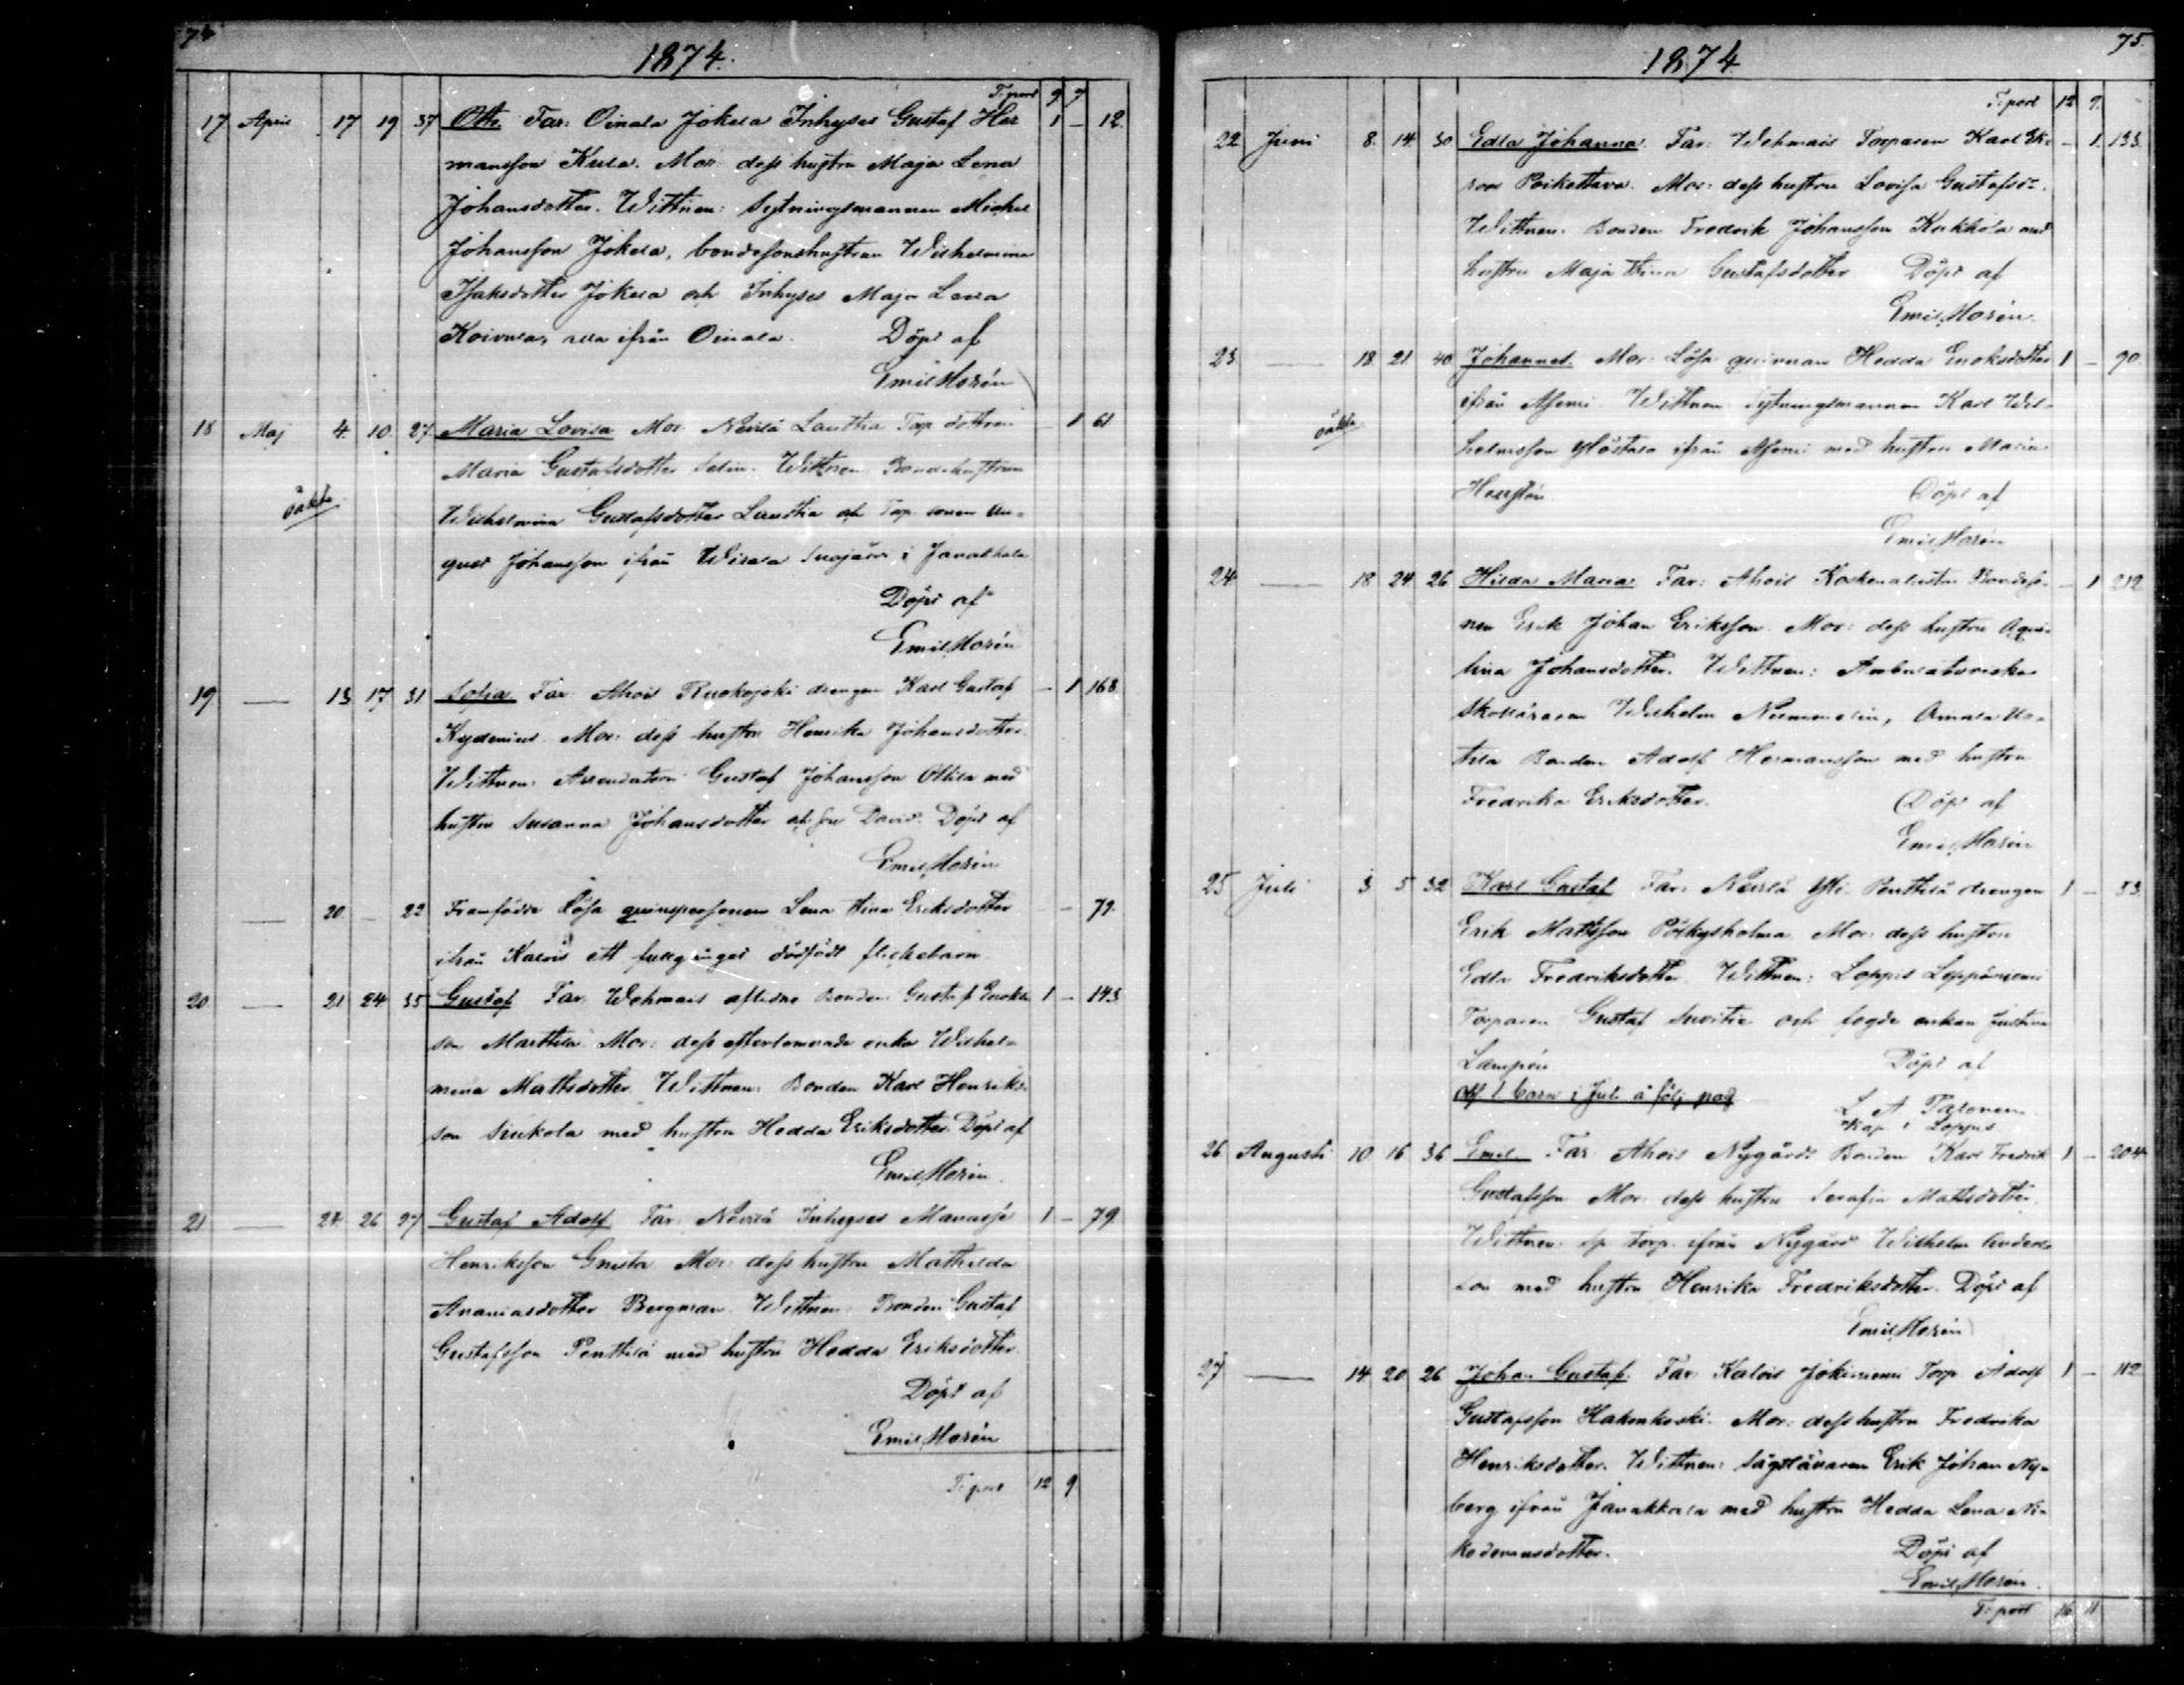 74
1874.
T. port 9 7
17 April 17 19 37 Otto. Far: Oinala Jokela Inhyses Gustaf Her 1 – 12.
mansson Kula. Mor dess hustru Maja Lena
Johansdotter. Wittnen: Sytningsmannen Michel
Johansson Jokela, bondesonshustrun Wilhelmina
Isaksdotter Jokela och Inhyses Maja Lena
Koivula, alla ifrån Oinala. Döpt af
Emil Horén
18 Maj 4. 10. 27. Maria Lovisa Mor Nevilä Lauttia Torp. dottren – 1 61
Maria Gustafsdotter Selin. Wittnen Bondehustrun
oäkta
Wilhelmina Gustafsdotter Lauttia och Torp. sonen Au-
gust Johansson ifrån Wirala i Janakkala
Döpt af
Emil Horén
19 — 13 17 31 Sofia Far Ahois Ruokojoki drengen Karl Gustaf – 1 168
Kydenius. Mor: dess hustru Henrika Johansdotter
Wittnen: Arrendatorn Gustaf Johansson Ottila med
hustru Susanna Johansdotter och son David. Döpt af
Emil Horén
— 20 — 22 Framfödde Lösa qvinspersonen Lena Stina Eriksdotter – – 79.
ifrån Kalois ett fullgånget dödfödt flickebarn
20 — 21 24 35 Gustaf Far. Wehmais aflidne Bonden Gustaf Enoks 1 – 143
son Marttila. Mor: dess efterlemnade enka Wilhel-
mina Mattsdotter. Wittnen: Bonden Karl Henriks-
son Sirkola med hustru Hedda Eriksdotter. Döpt af
Emil Horén.
21 — 24. 26 27 Gustaf Adolf Far Nevilä Inhyses Manasse 1 – 79
Henriksson Gnista Mor: dess hustru Mathilda
Ananiasdotter Bergman. Wittnen: Bonden Gustaf
Gustafsson Penttilä med hustru Hedda Eriksdotter.
Döpt af
Emil Horén
T. port 12 9
75.
1874
T. port 12 9.
22 Juni 8. 14. 30 Edla Johanna. Far: Wehmais Torparen Karl Ek- – 1. 133.
roos Poikettava. Mor: dess hustru Lovisa Gustafsdr.
Wittnen. Bonden Fredrik Johansson Kukkola med
hustru Maja Stina Gustafsdotter Döpt af
Emil Horén.
23 — 18. 21. 40 Johannes. Mor: Lösa qvinnan Hedda Enoksdotter 1 – 90.
ifrån Asemi Wittnen Sytningsmannen Karl Wil-
oäkta
helmsson Ylöstalo ifrån Asemi med hustru Maria
Döpt af
Emil Horén
24 — 18 24 26 Hilda Maria Far: Ahois Koskenalusta Bondeso- – 1 212
nen Erik Johan Eriksson. Mor: dess hustru Aqvi-
lina Johansdotter. Wittnen: Ambulatoriska
Skolläraren Wilhelm Nummelin, Oinala Un-
tila Bonden Adolf Hermansson med hustru
Fredrika Eriksdotter. Döpt af
Emil Horén
25 Juli 3 5 32 Karl Gustaf Far: Nevilä Yli Penttilä drengen 1 – 83.
Erik Mattsson Pölkysholma Mor: dess hustru
Edla Fredriksdotter Wittnen: Loppis Leppäniemi
Torparen Gustaf Suvitie och fogde enkan Justina
Lampén Döpt af
obs! 1 barn i Juli å följ. pag.
L. A. Talonen
Kap. i Loppis.
26 Augusti 10 16 36 Emil. Far Ahois Nygårds Bonden Karl Fredrik 1 – 204
Gustafsson Mor: dess hustru Serafia Mattsdotter.
Wittnen: Sp. torp. ifrån Nygård Wilhelm Anders-
son med hustru Henrika Fredriksdotter. Döpt af
Emil Horén
27 — 14 20 26 Johan Gustaf. Far: Kalois Jokiniemi Torp. Adolf 1 – 112
Gustafsson Hakenkoski. Mor: dess hustru Fredrika
Henriksdotter. Wittnen: Sågställaren Erik Johan Ny-
berg ifrån Janakkala med hustru Hedda Lena Ni-
kodemusdotter. Döpt af
Emil Horén.
T. port 16 11